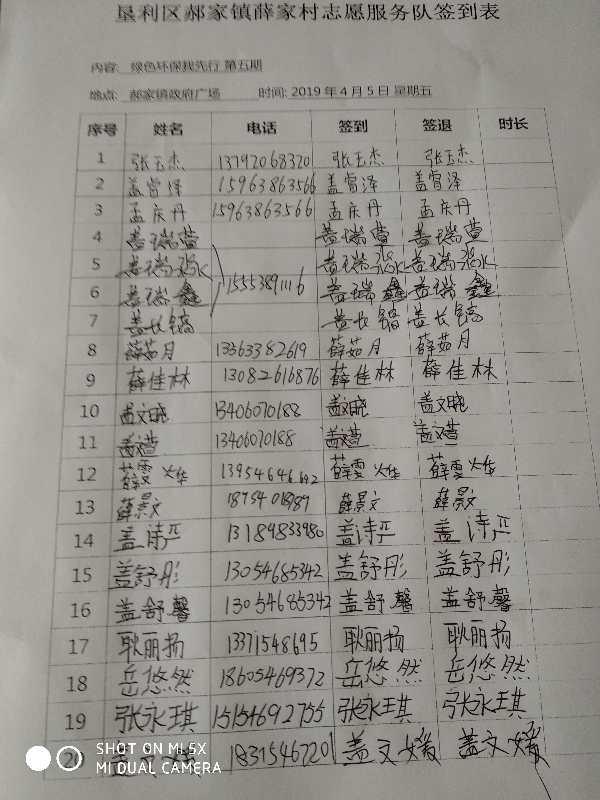 垦利区郝家镇薛家村志愿服务队签到表
内容: 绿色环保我先行 第五期
地点: 郝家镇政府广场 时间: 2019 年 4 月 5 日 星期五
序号 姓名 电话 签到 签退 时长
1 张玉杰 13792068320 张玉杰 张玉杰
2 盖曾泽 15963863566 盖曾泽 盖曾泽
3 孟庆丹 15963863566 孟庆丹 孟庆丹
4 盖瑞萱 盖瑞萱 盖瑞萱
5 盖瑞淼 盖瑞淼 盖瑞淼
15553891116
6 盖瑞鑫 盖瑞鑫 盖瑞鑫
7 盖长镐 盖长镐 盖长镐
8 薛茹月 13363382619 薛茹月 薛茹月
9 薛佳林 13082616876 薛佳林 薛佳林
10 盖文晓 13406070188 盖文晓 盖文晓
11 盖文萱 13406070188 盖文萱 盖文萱
12 薛雯烨 13954646692 薛雯烨 薛雯烨
13 薛景文 薛景文 薛景文
14 盖诗严 13189833980 盖诗严 盖诗严
15 盖舒彤 13054685342 盖舒彤 盖舒彤
16 盖舒馨 13054685342 盖舒馨 盖舒馨
17 耿丽扬 13371548695 耿丽扬 耿丽扬
18 岳悠然 18605469372 岳悠然 岳悠然
19 张永琪 15154692755 张永琪 张永琪
20 盖文媛 18315467201 盖文媛 盖文媛
SHOT ON MI 5X
MI DUAL CAMERA